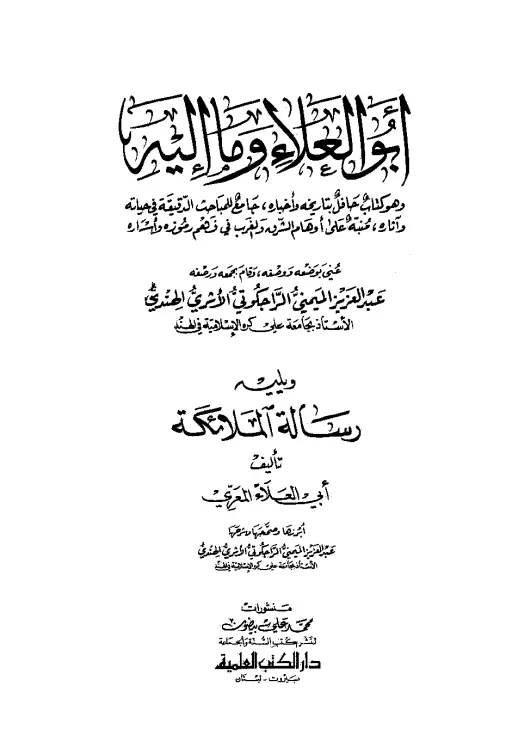 أبو العلاء وما إليه
وهو كتاب حافل بتاريخه وأخباره، جامع للمباحث الدقيقة في حياته
وآثاره، منبّه على أوهام الشرق والغرب في فهم رموزه وأسراره
عُني بوضعه ووصفه، وقام بجمعه ورصفه
عبد العزيز الميمنيُّ الراجكوتيُّ الأثريُّ الهنديُّ
الأستاذ بجامعة على كره الإسلامية في الهند
ويليه
رسالة الملائكة
تأليف
أبي العلاء المعري
أبرزها وصححها وشرحها
عبد العزيز الميمنيُّ الراجكوتيُّ الأثريُّ الهنديُّ
الأستاذ بجامعة على كره الإسلامية في الهند
منشورات
محمد علي بيضون
لنشر كتب السنة والجماعة
دار الكتب العلمية
بيروت - لبنان